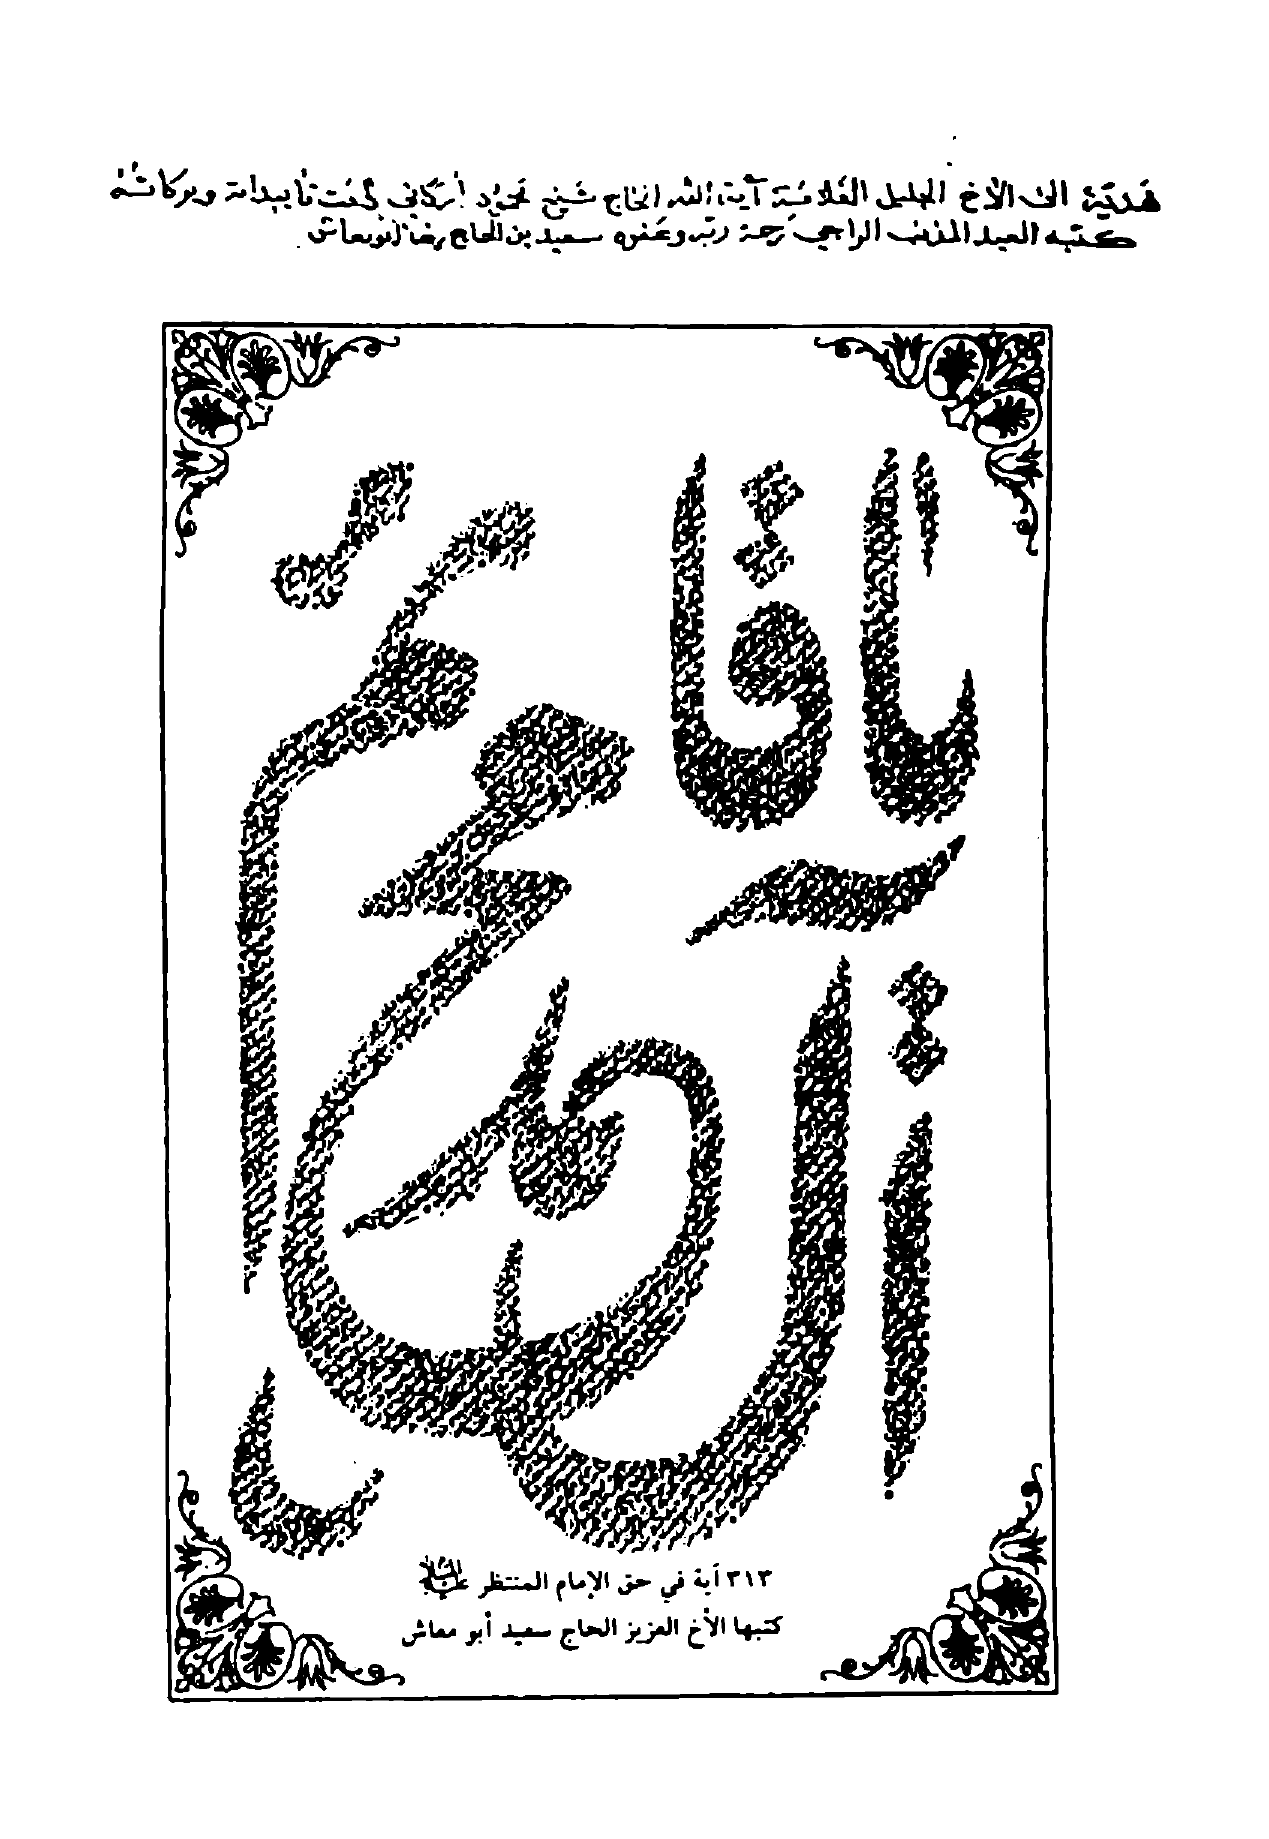 هدية الى الأخ الجليل العلامة آية الله الحاج شيخ محمود أركاني دامت تأييداته وبركاته
كتبه العبد المذنب الراجي رحمة ربه وعفوه سعيد بن الحاج رضا أبو معاش
يا قائم آل محمد
٣١٣ آية في حق الإمام المنتظر عليه السلام
كتبها الأخ العزيز الحاج سعيد أبو معاش